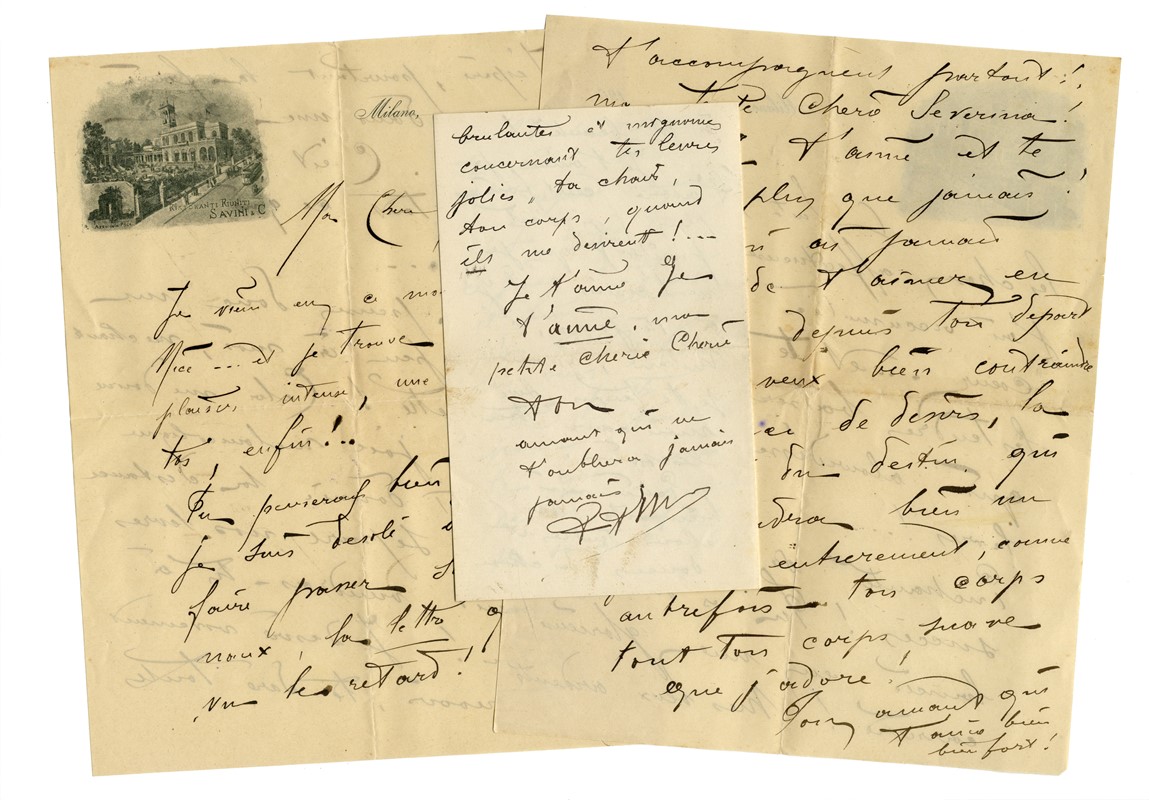 RISTORANTI RIUNITI
SAVINI & C
Milano,
Ma Cher
Je viens en ce mo
Nice --- et je trouve
plaisir intense, une
toi, enfin!..
Tu penseras bien
je suis desolé
faire passer
naux, la lettre
vu les retard!
brulantes et mignonnes
concernant tes levres
jolies, ta chair,
ton corps, quand
ils me desirent!...
Je t'aime Je
t'aime, ma
petite Cherie Cherie
ton
amant qui ne
t'oubliera jamais
jamais
t'accompagnent partout!
ma Cherè Severina!
t'aime et te
plus que jamais!
ai jamais
de t'aimer en
depuis ton depart
veux bien contraindre
de desirs, la
du destin qui
bien un
entierement, comme
autrefois — ton corps
tout ton corps suave
que j'adore!
Ton amant qui
t'aime bien
bien fort!